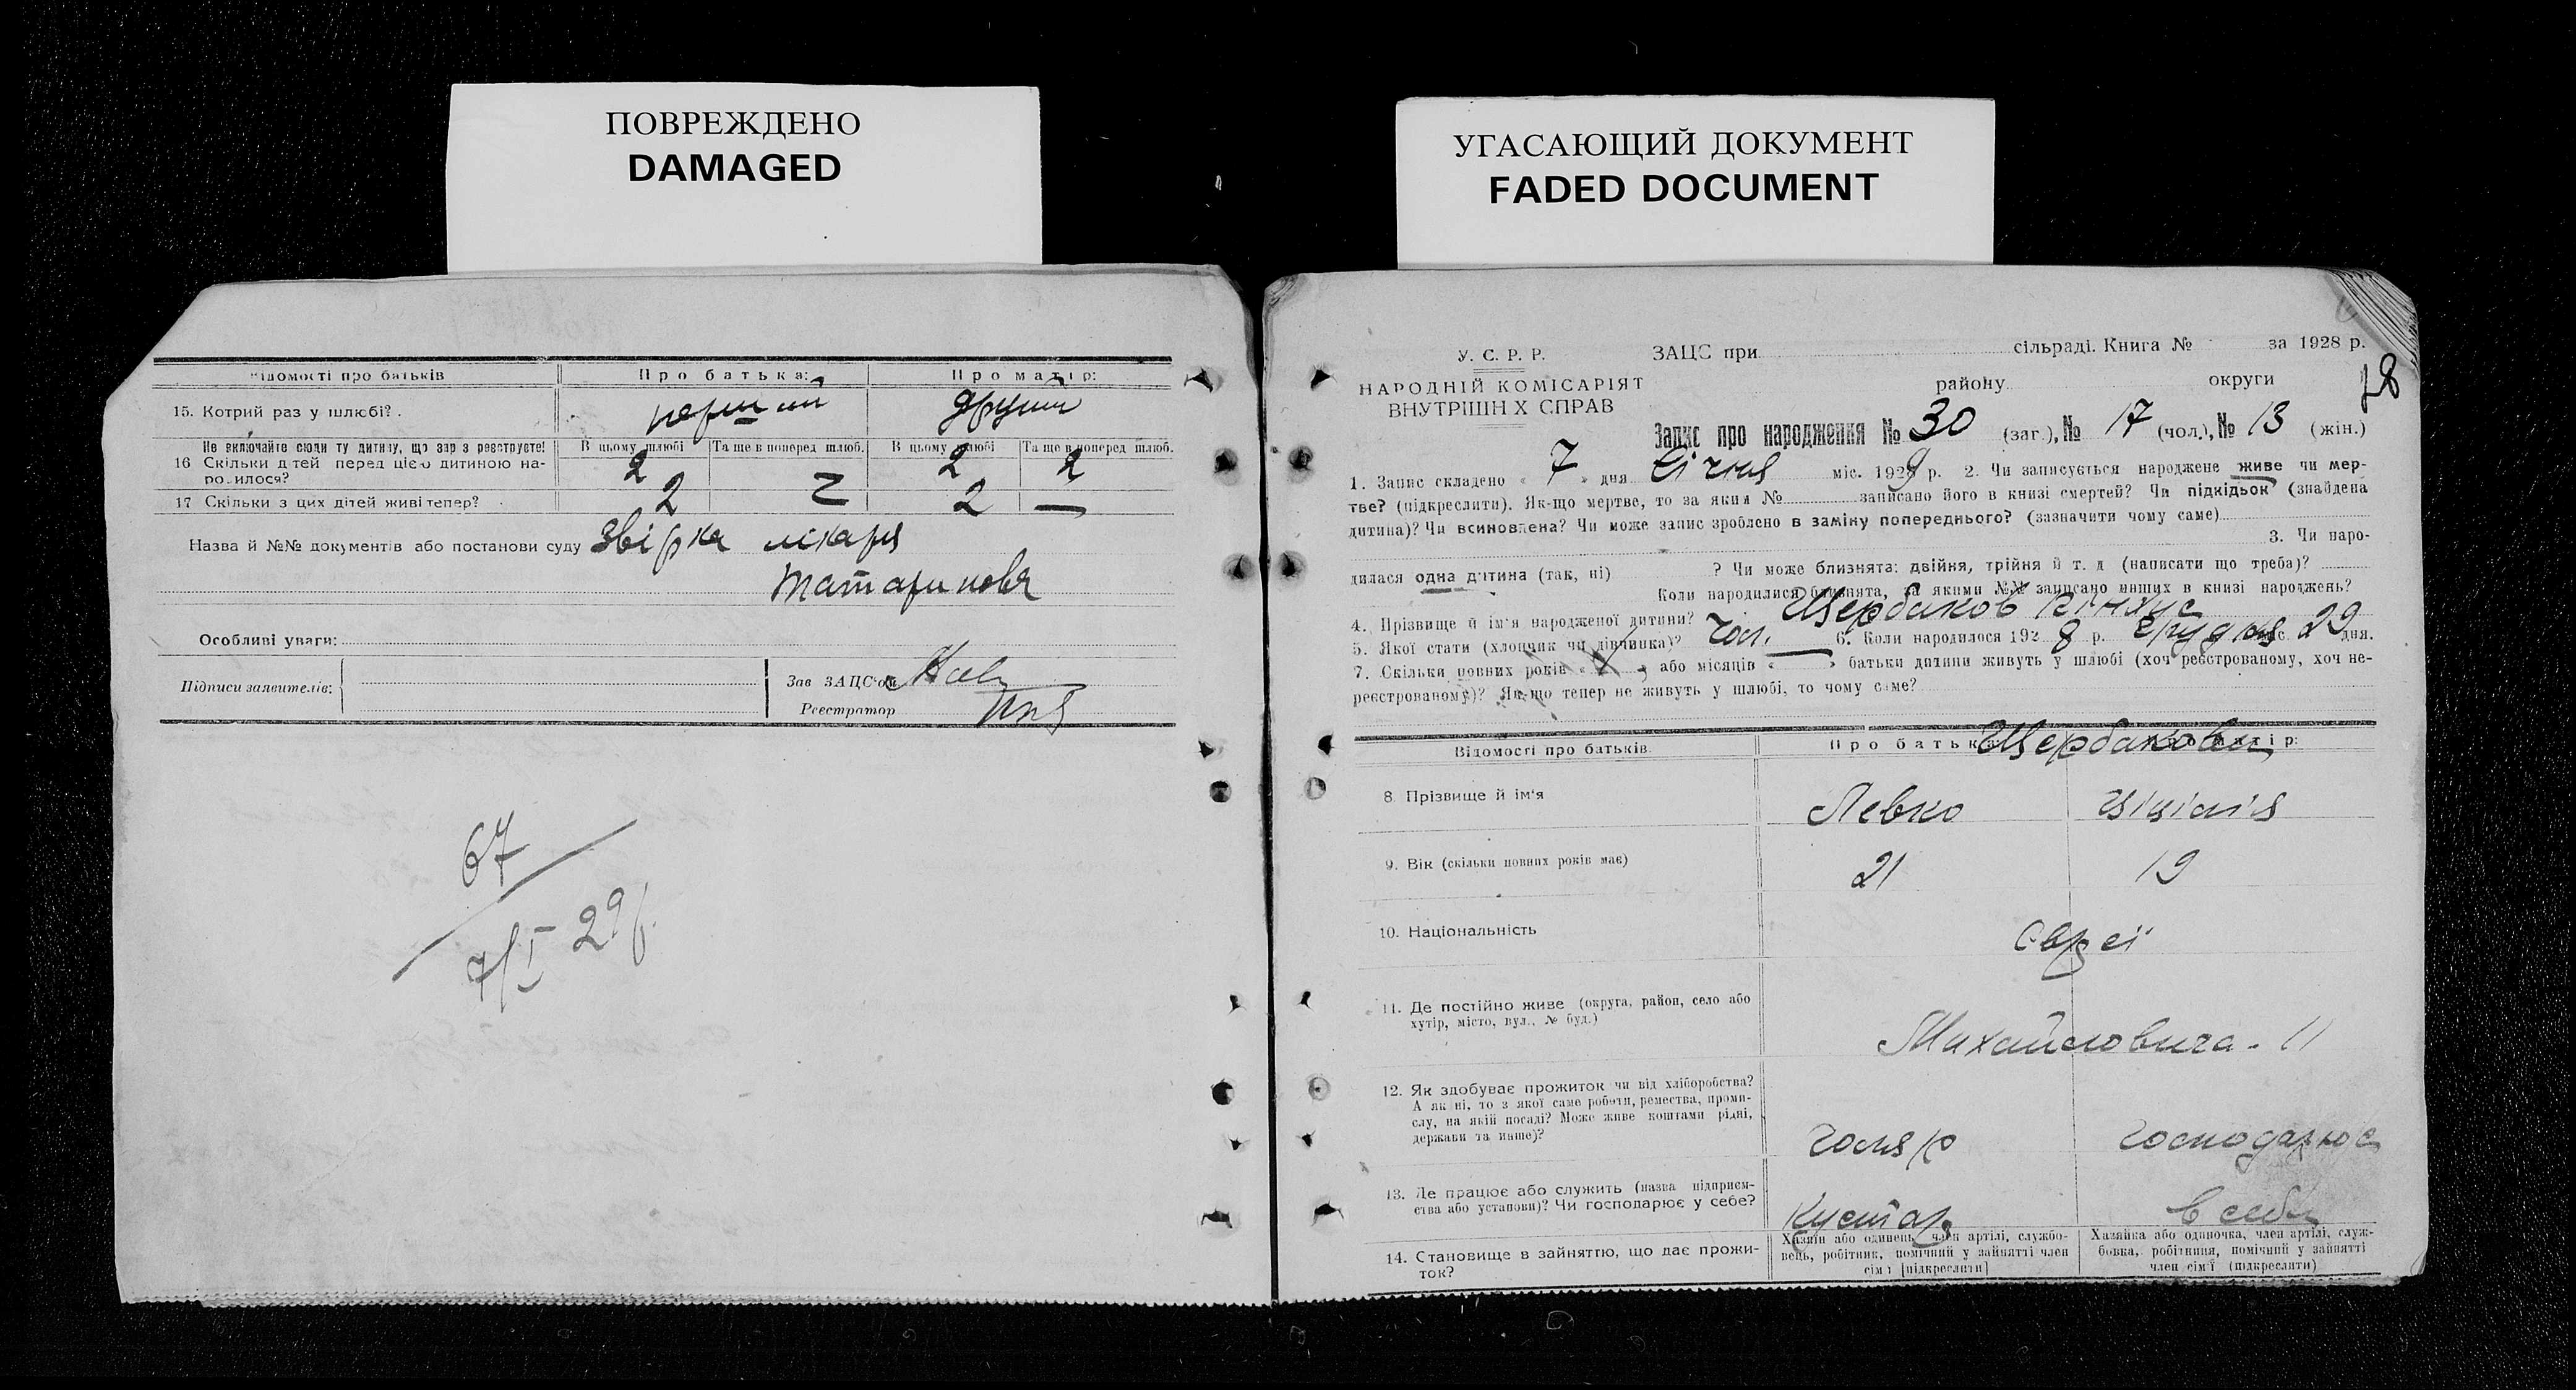 ПОВРЕЖДЕНО
DAMAGED
УГАСАЮЩИЙ ДОКУМЕНТ
FADED DOCUMENT
Відомості про батьків
Про батька:
Про матір:
15. Котрий раз у шлюбі?
перший
другий
Не включайте сюди ту дитину, що зар з реєструєте!
В цьому шлюбі
Та ще в поперед шлюб.
В цьому шлюбі
Та ще в поперед шлюб.
16 Скільки дітей перед цією дитиною на-
родилося?
2
2
2
17 Скільки з цих дітей живі тепер?
2
2
—
Назва й №№ документів або постанови суду звірка лікаря
Татаринова
Особливі уваги:
Підписи заявителів:
Зав ЗАЦС'ом
Реєстратор
67
7/I 29 р.
У. С. Р. Р.
НАРОДНІЙ КОМІСАРІЯТ
ВНУТРІШНІХ СПРАВ
ЗАЦС при сільраді. Книга № за 1928 р.
району округи
78
Запис про народження № 30 (заг.), № 17 (чол.), № 13 (жін.)
1. Запис складено « 7 » дня січня міс. 1929 р. 2. Чи записується народжене живе чи мер-
тве? (підкреслити). Як-що мертве, то за яким № записано його в книзі смертей? Чи підкідьок (знайдена
дитина)? Чи всиновлена? Чи може запис зроблено в заміну попереднього? (зазначити чому саме)
3. Чи наро-
дилася одна дитина (так, ні) ? Чи може близнята: двійня, трійня й т. д (написати що треба)?
Коли народилися близнята, за якими №№ записано инших в книзі народжень?
4. Прізвище й ім'я народженої дитини? Щербаков
5. Якої стати (хлопчик чи дівчинка)? чол. 6. Коли народилося 1928 р. грудня міс. 29 дня.
7. Скільки повних років « » або місяців « — » батьки дитини живуть у шлюбі (хоч реєстрованому, хоч не-
реєстрованому)? Як-що тепер не живуть у шлюбі, то чому саме?
Відомості про батьків.
Про батька:
Про матір:
Щербакови
8. Прізвище й ім'я
Левко
Ціцілія
9. Вік (скільки повних років має)
21
19
10. Національність
Євреї
11. Де постійно живе (округа, район, село або
хутір, місто, вул., № буд.)
Михайловича - 11
12. Як здобуває прожиток чи від хліборобства?
А як ні, то з якої саме роботи, ремества, проми-
слу, на якій посаді? Може живе коштами рідні,
держави та инше)?
господарює
13. Де працює або служить (назва підприєм-
ства або установи)? Чи господарює у себе?
Кустар
в себе
14. Становище в зайняттю, що дає прожи-
ток?
Хазяїн або одинець, член артілі, службо-
вець, робітник, помічний у зайнятті член
сім'ї (підкреслити)
Хазяйка або одиночка, член артілі, служ-
бовка, робітниця, помічний у зайнятті
член сім'ї (підкреслити)